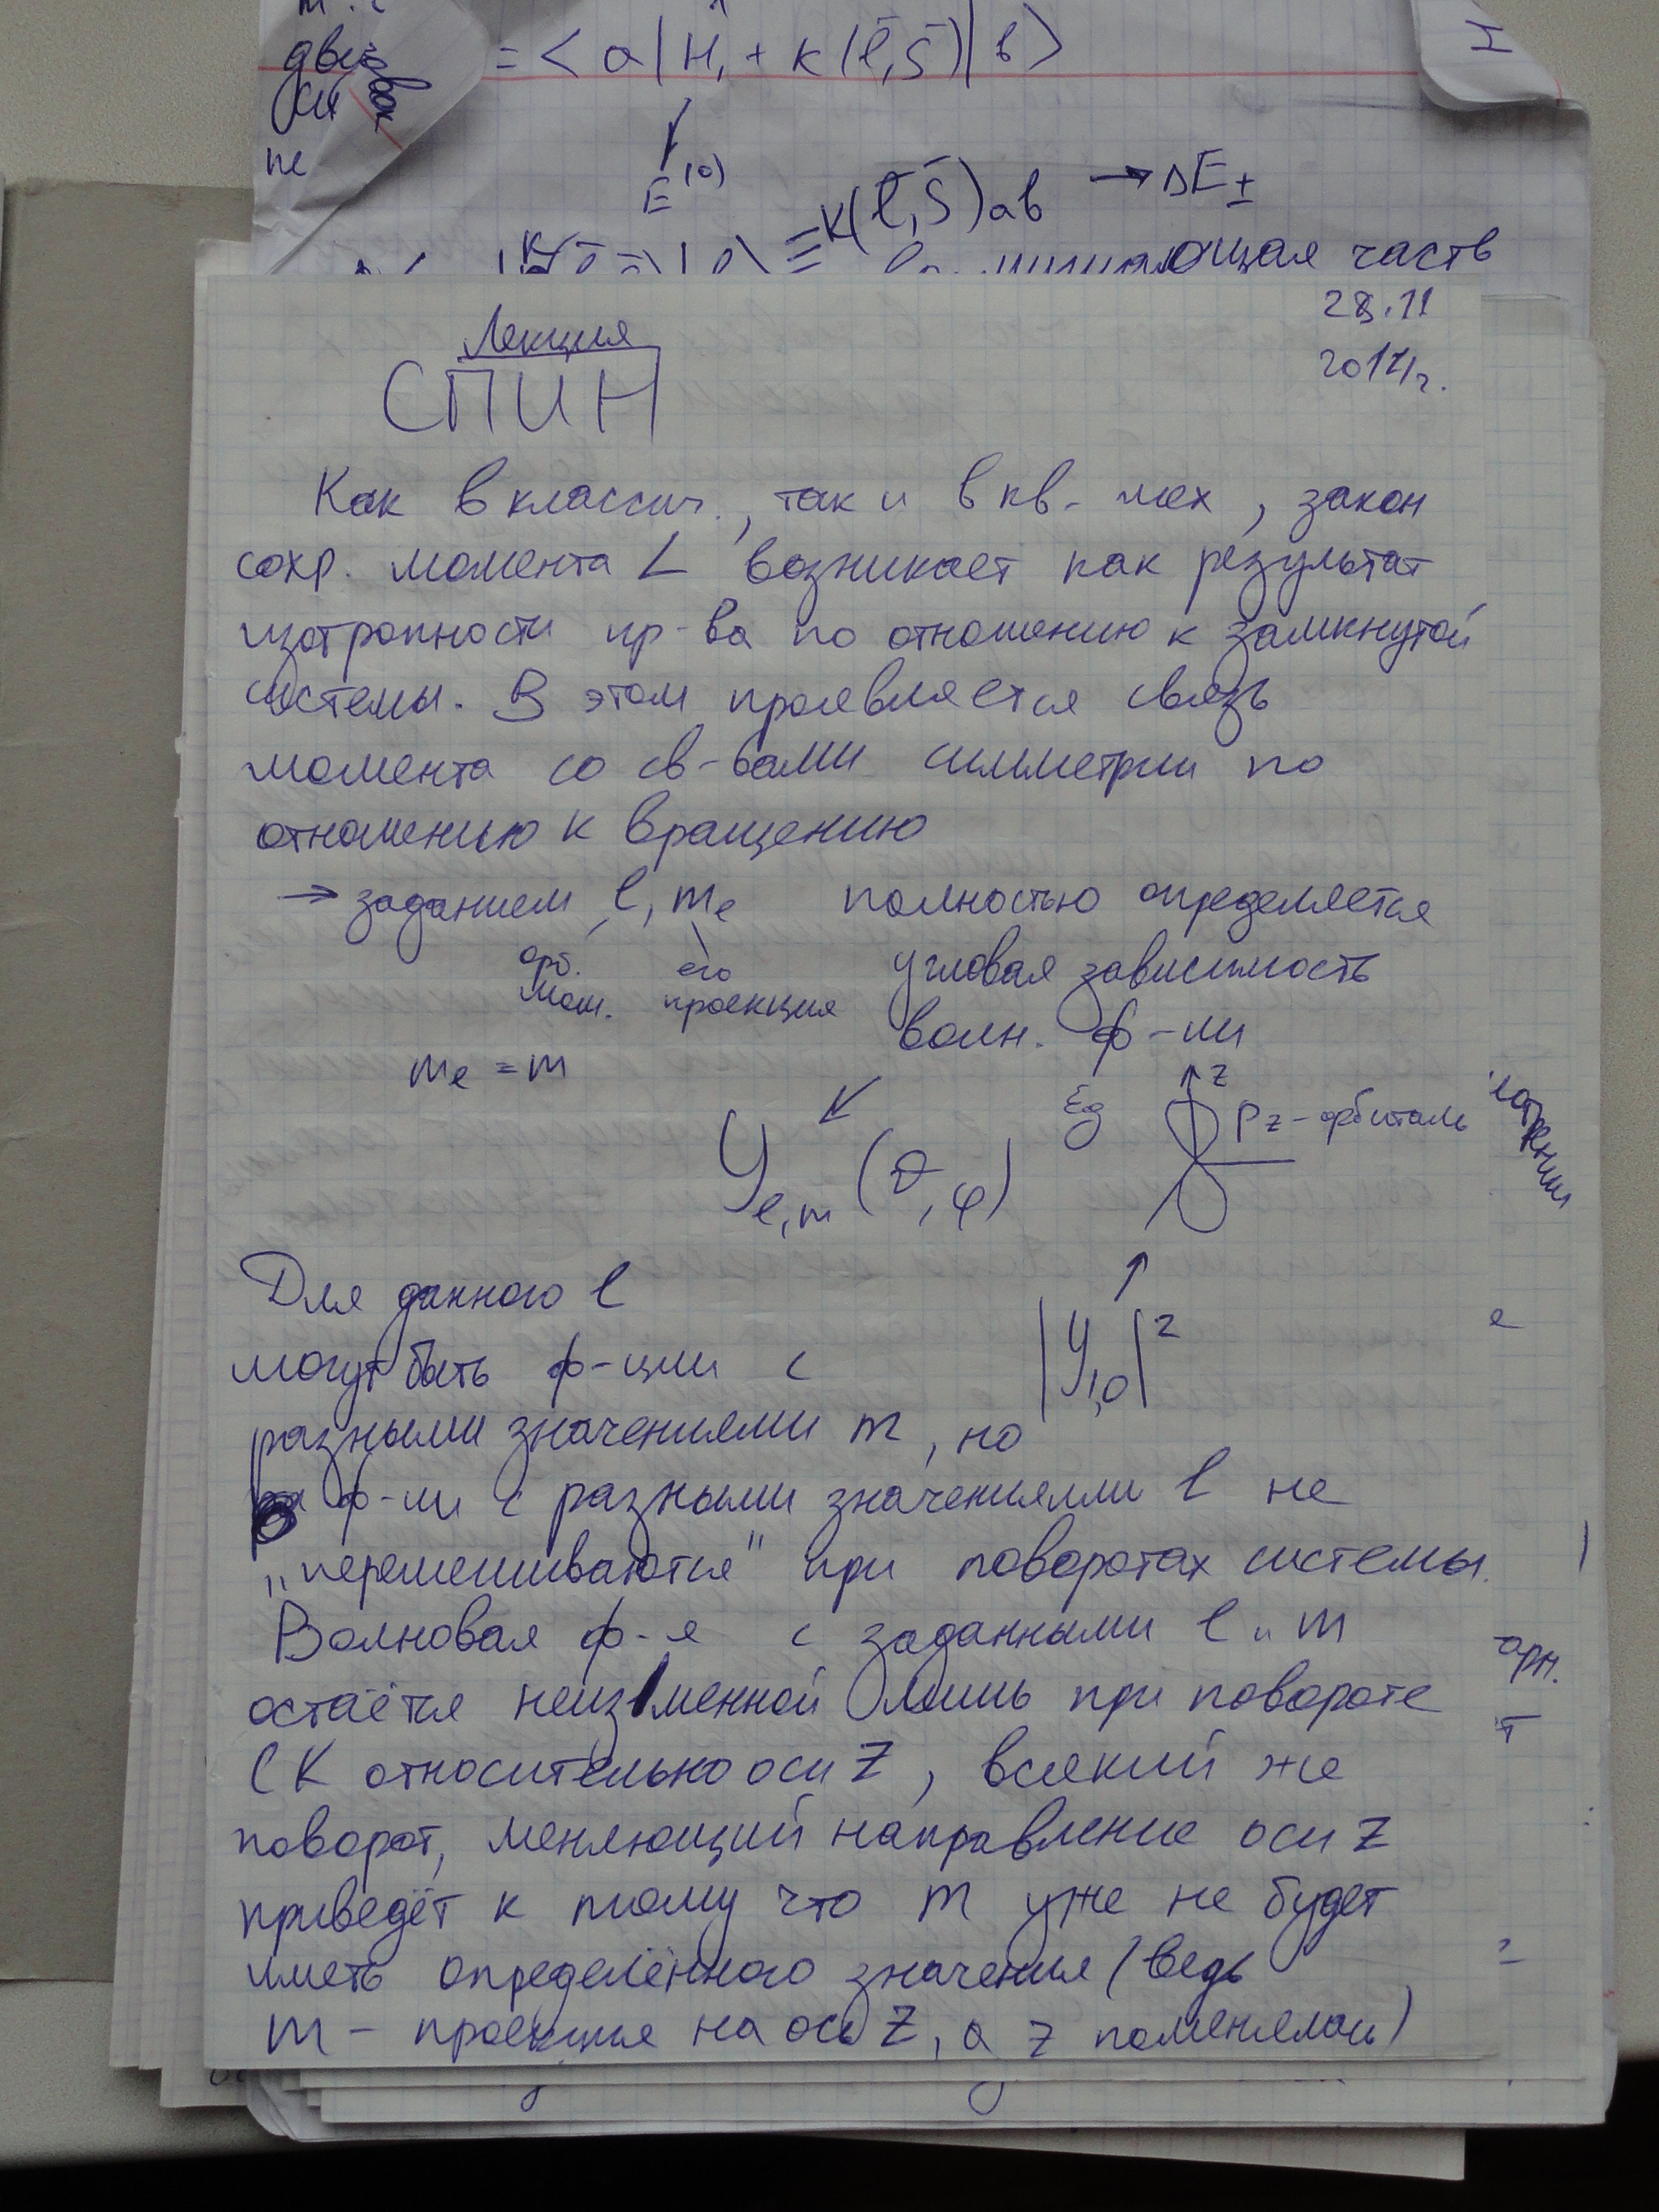 = < a | H₁ + K(l̄, s̄) | b >
E⁽⁰⁾
≡ K(l̄, s̄)ab → ΔE±
ющая часть
28.11
Лекция
СПИН
Как в классич., так и в кв-мех, закон
сохр. момента L возникает как результат
изотропности пр-ва по отношению к замкнутой
системы. В этом проявляется связь
момента со св-вами симметрии по
отношению к вращению
→ заданием l, mₑ полностью определяется
орб. его угловая зависимость
мом. проекция волн. ф-ии
mₑ = m
z
Eg Pz-орбиталь
Yₑ,ₘ(θ, φ)
Для данного l
|Y₁,₀|²
могут быть ф-ции с
разными значениями m, но
ф-ии с разными значениями l не
„перемешиваются" при поворотах системы.
Волновая ф-я с заданными l и m
остаётся неизменной лишь при повороте
СК относительно оси Z, всякий же
поворот, меняющий направление оси Z
приведёт к тому что m уже не будет
иметь определённого значения (ведь
m – проекция на ось Z, а z поменялась)